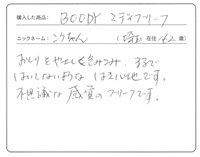 購入した商品: BOODY ミディブリーフ
ニックネーム: こうちゃん (埼玉 在住 62 歳)
おしりをやさしくきみこみ、まるで
はいてないような はき心地です。
不思議な感覚のブリーフです。